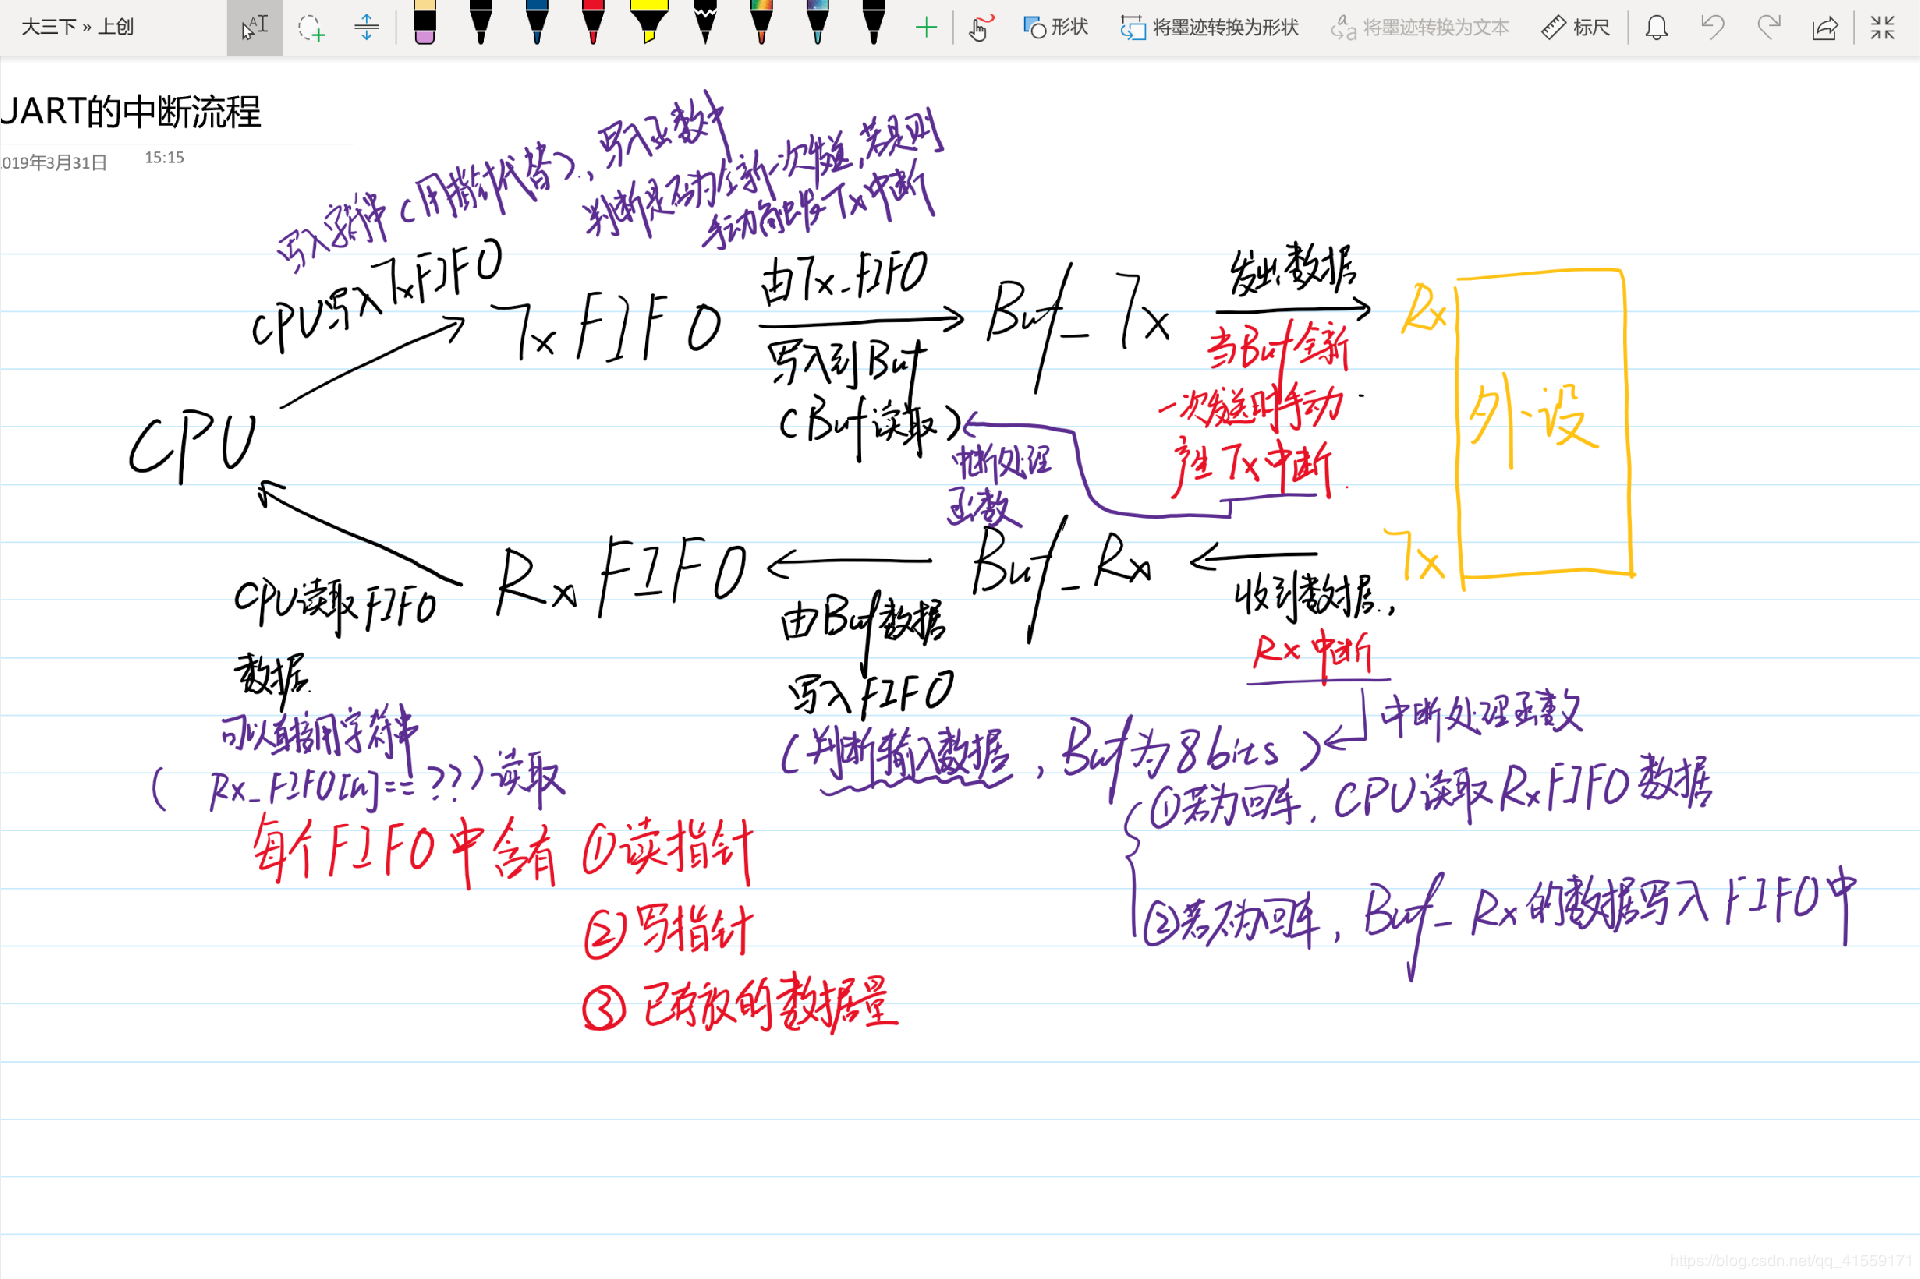 大三下 » 上创
形状
将墨迹转换为形状
将墨迹转换为文本
标尺
UART的中断流程
2019年3月31日 15:15
写入字符串（用指针代替），写入函数中
判断是否为全新一次发送，若是则
手动触发Tx中断
CPU写入TxFIFO
TxFIFO
由Tx_FIFO
写入到Buf
(Buf读取)
Buf_Tx
发出数据
当Buf全新
一次发送时手动
产生Tx中断
Rx
外设
Tx
CPU
中断处理
函数
RxFIFO
CPU读取FIFO
数据
可以直接用字符串
(Rx_FIFO[n]==??)读取
由Buf数据
写入FIFO
(判断输入数据，Buf为8bits)
Buf_Rx
收到数据，
Rx中断
中断处理函数
①若为回车，CPU读取RxFIFO数据
②若不为回车，Buf_Rx的数据写入FIFO中
每个FIFO中含有 ①读指针
②写指针
③已存放的数据量
https://blog.csdn.net/qq_41559171